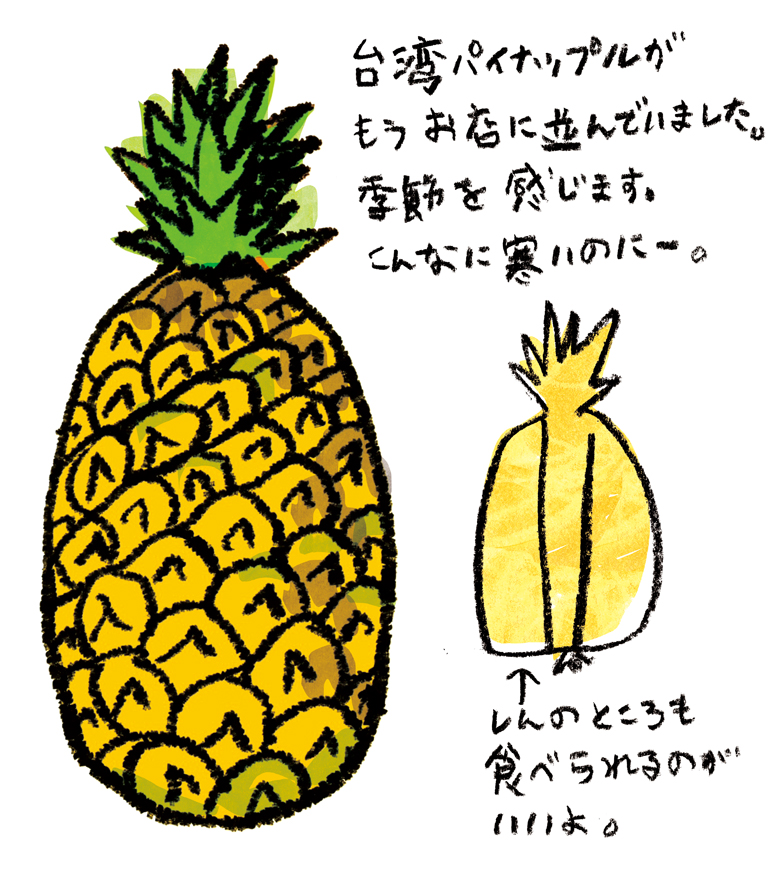 台湾パイナップルが
もうお店に並んでいました。
季節を感じます。
こんなに寒いのにー。
しんのところも
食べられるのが
いいよ。